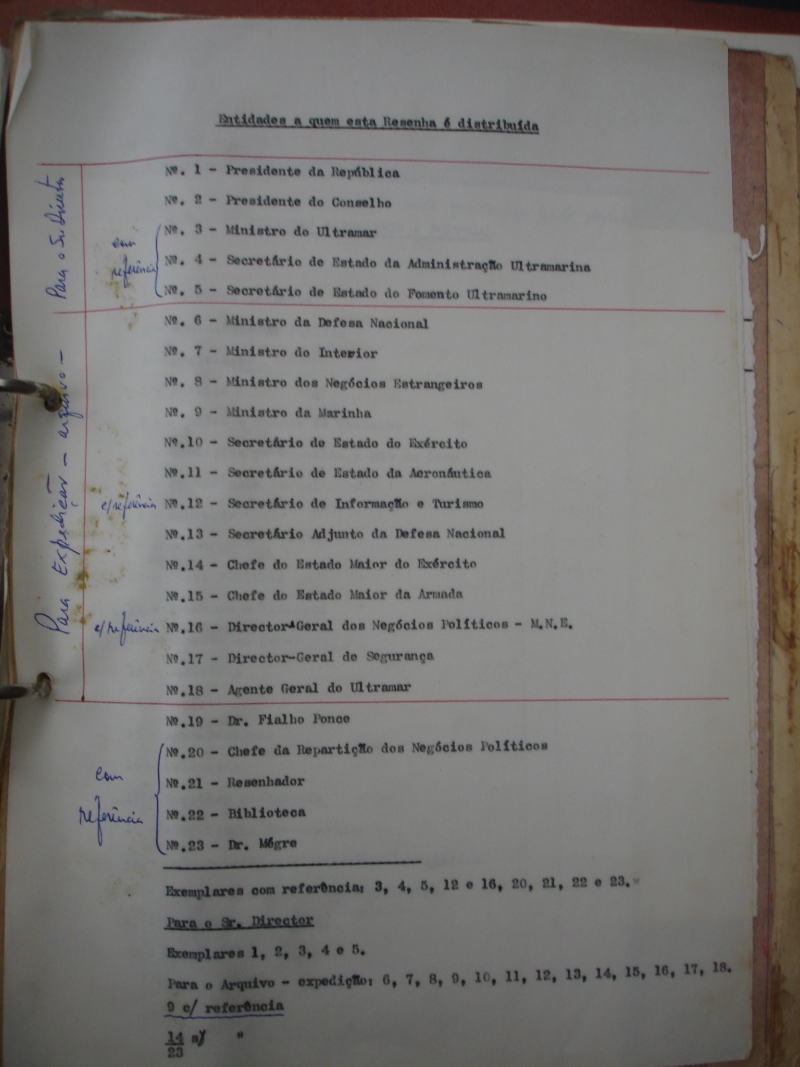 Entidades a quem esta Resenha é distribuída
Para o Sr. Director
Nº. 1 - Presidente da República
Nº. 2 - Presidente do Conselho
com referência
Nº. 3 - Ministro do Ultramar
Nº. 4 - Secretário de Estado da Administração Ultramarina
Nº. 5 - Secretário de Estado do Fomento Ultramarino
Para Expedição - arquivo -
Nº. 6 - Ministro da Defesa Nacional
Nº. 7 - Ministro do Interior
Nº. 8 - Ministro dos Negócios Estrangeiros
Nº. 9 - Ministro da Marinha
Nº.10 - Secretário de Estado do Exército
Nº.11 - Secretário de Estado da Aeronáutica
c/referência Nº.12 - Secretário de Informação e Turismo
Nº.13 - Secretário Adjunto da Defesa Nacional
Nº.14 - Chefe do Estado Maior do Exército
Nº.15 - Chefe do Estado Maior da Armada
c/referência Nº.16 - Director-Geral dos Negócios Políticos - M.N.E.
Nº.17 - Director-Geral de Segurança
Nº.18 - Agente Geral do Ultramar
Nº.19 - Dr. Fialho Ponce
com
referência
Nº.20 - Chefe da Repartição dos Negócios Políticos
Nº.21 - Resenhador
Nº.22 - Biblioteca
Nº.23 - Dr. Mégre
Exemplares com referência: 3, 4, 5, 12 e 16, 20, 21, 22 e 23.
Para o Sr. Director
Exemplares 1, 2, 3, 4 e 5.
Para o Arquivo - expedição: 6, 7, 8, 9, 10, 11, 12, 13, 14, 15, 16, 17, 18.
9 c/ referência
14 s/ "
23